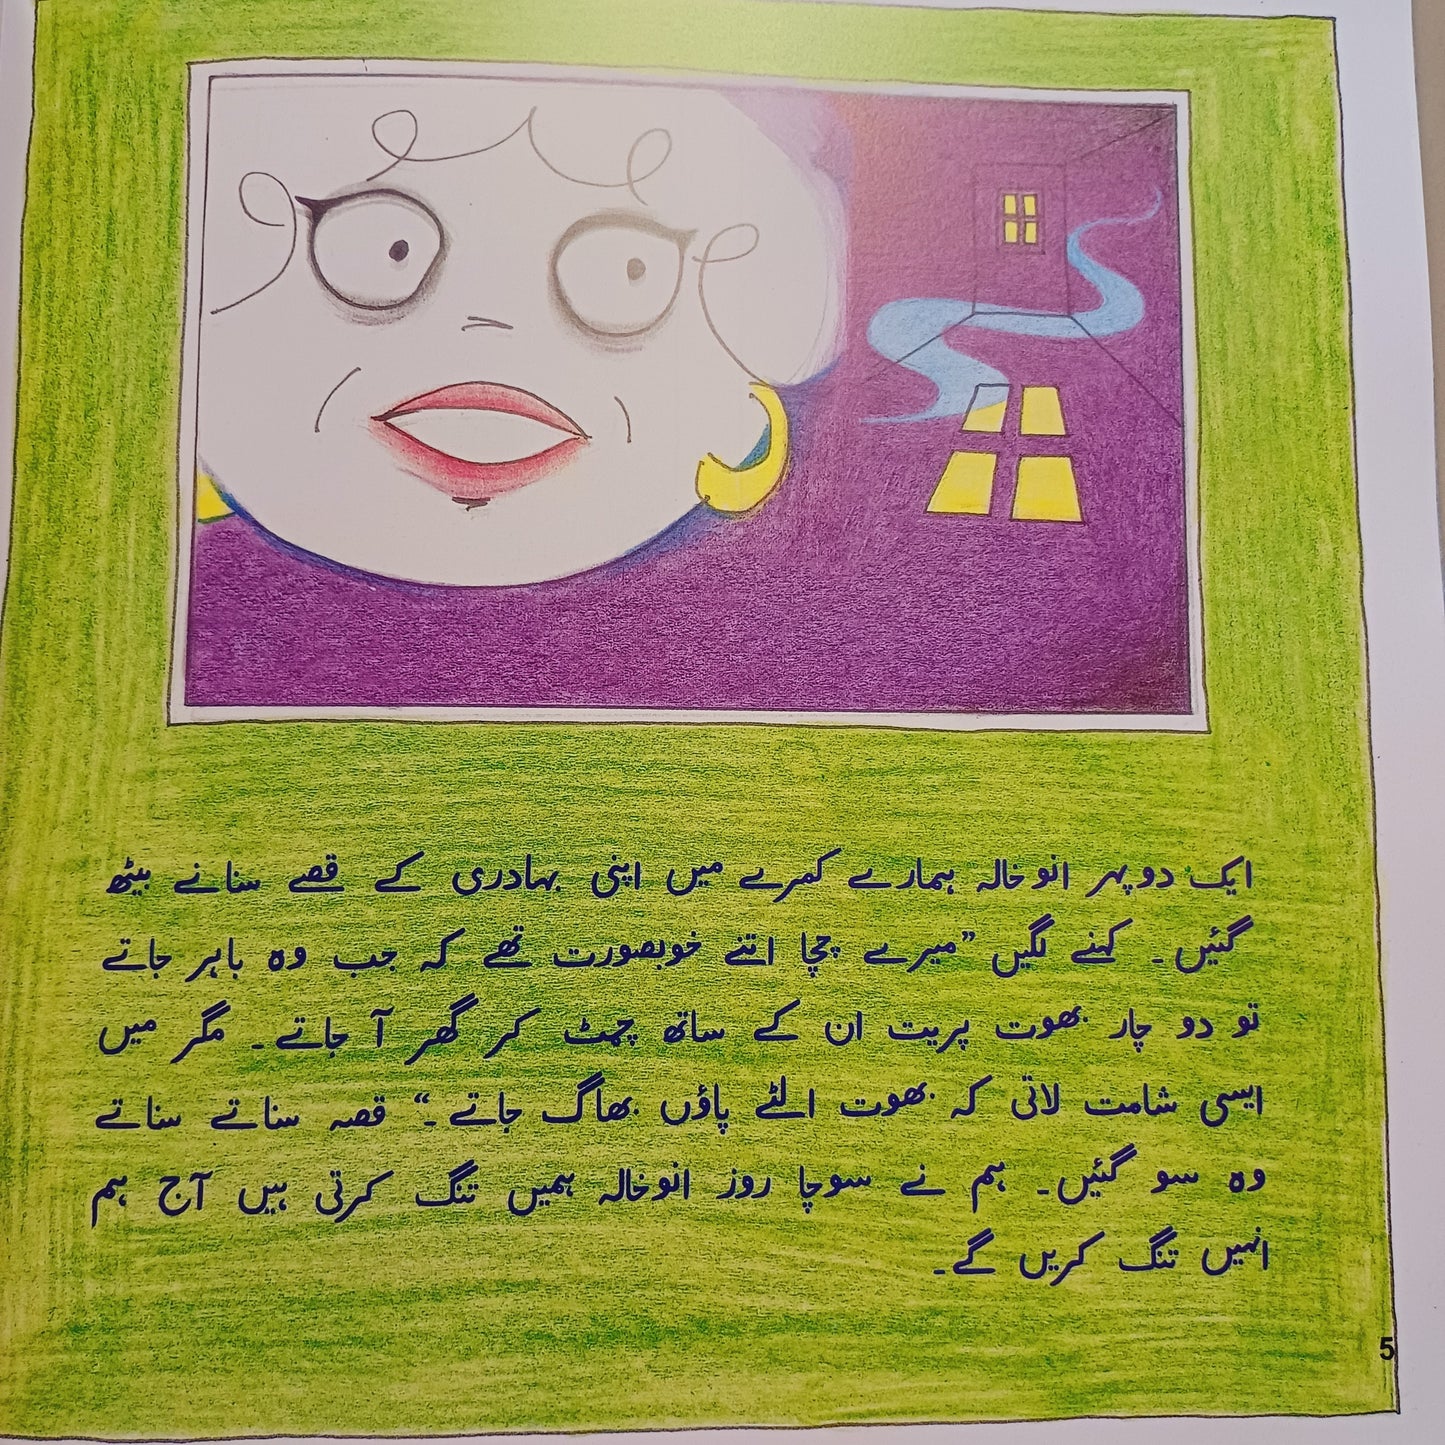 ایک دوپہر انو خالہ ہمارے کمرے میں اپنی بہادری کے قصے سنانے بیٹھ
گئیں۔ کہنے لگیں ”میرے چچا اتنے خوبصورت تھے کہ جب وہ باہر جاتے
تو دو چار بھوت پریت ان کے ساتھ چمٹ کر گھر آ جاتے۔ مگر میں
ایسی شامت لاتی کہ بھوت الٹے پاؤں بھاگ جاتے۔“ قصہ سناتے سناتے
وہ سو گئیں۔ ہم نے سوچا روز انو خالہ ہمیں تنگ کرتی ہیں آج ہم
انہیں تنگ کریں گے۔
5